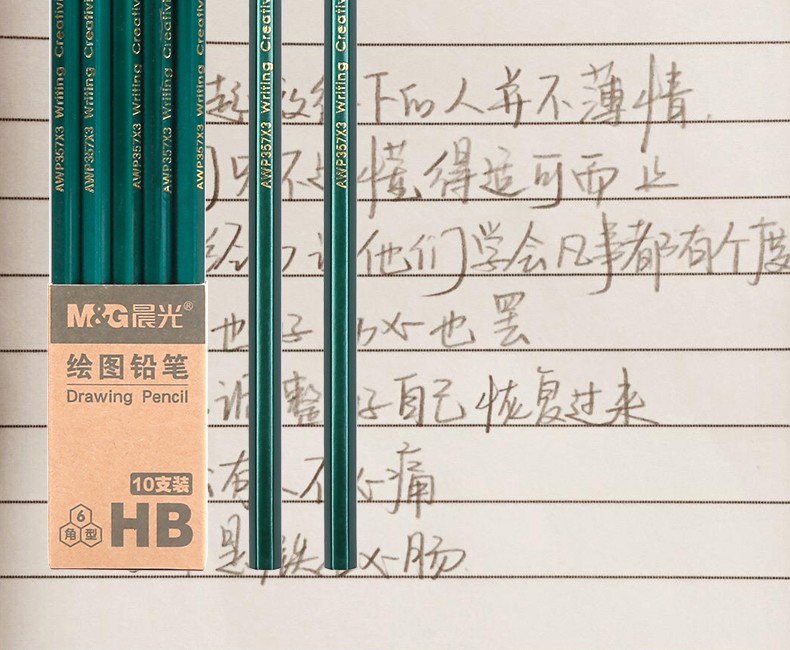 AWP357X3 Writing Creativi
AWP357X3 Writing Creativi
AWP357X3 Writing
AWP357X3 Writing Creativi
AWP357X3 Writing Creativi
AWP357X3 Writing Creativi
AWP357X3 Writing Creativi
M&G晨光®
绘图铅笔
Drawing Pencil
10支装
6角型
HB
起 放 下的人并不薄情
不 懂得适可而止
经 他们学会凡事都有个度
也 心也罢
整 好自己恢复过来
有 人不心痛
是 铁 心肠